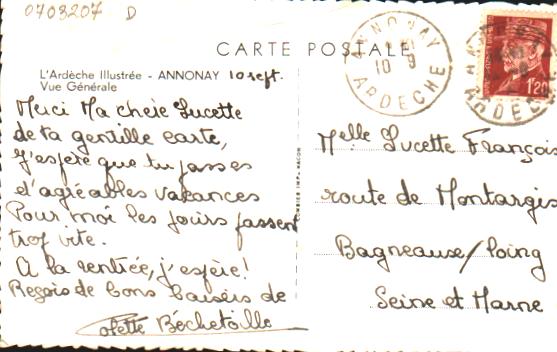 0703207 D
CARTE POSTALE
L'Ardèche Illustrée - ANNONAY 10 sept.
Vue Générale
Merci Ma chère Lucette
de ta gentille carte,
J'espère que tu passes
d'agréables vacances
Pour moi les jours passent
trop vite.
A la rentrée, j'espère!
Reçois de bons baisers de
Colette Béchetoille
ANNONAY
10 9
ARDECHE
ARDECHE
1f20
Melle Lucette François
route de Montargis
Bagneause/loing
Seine et Marne